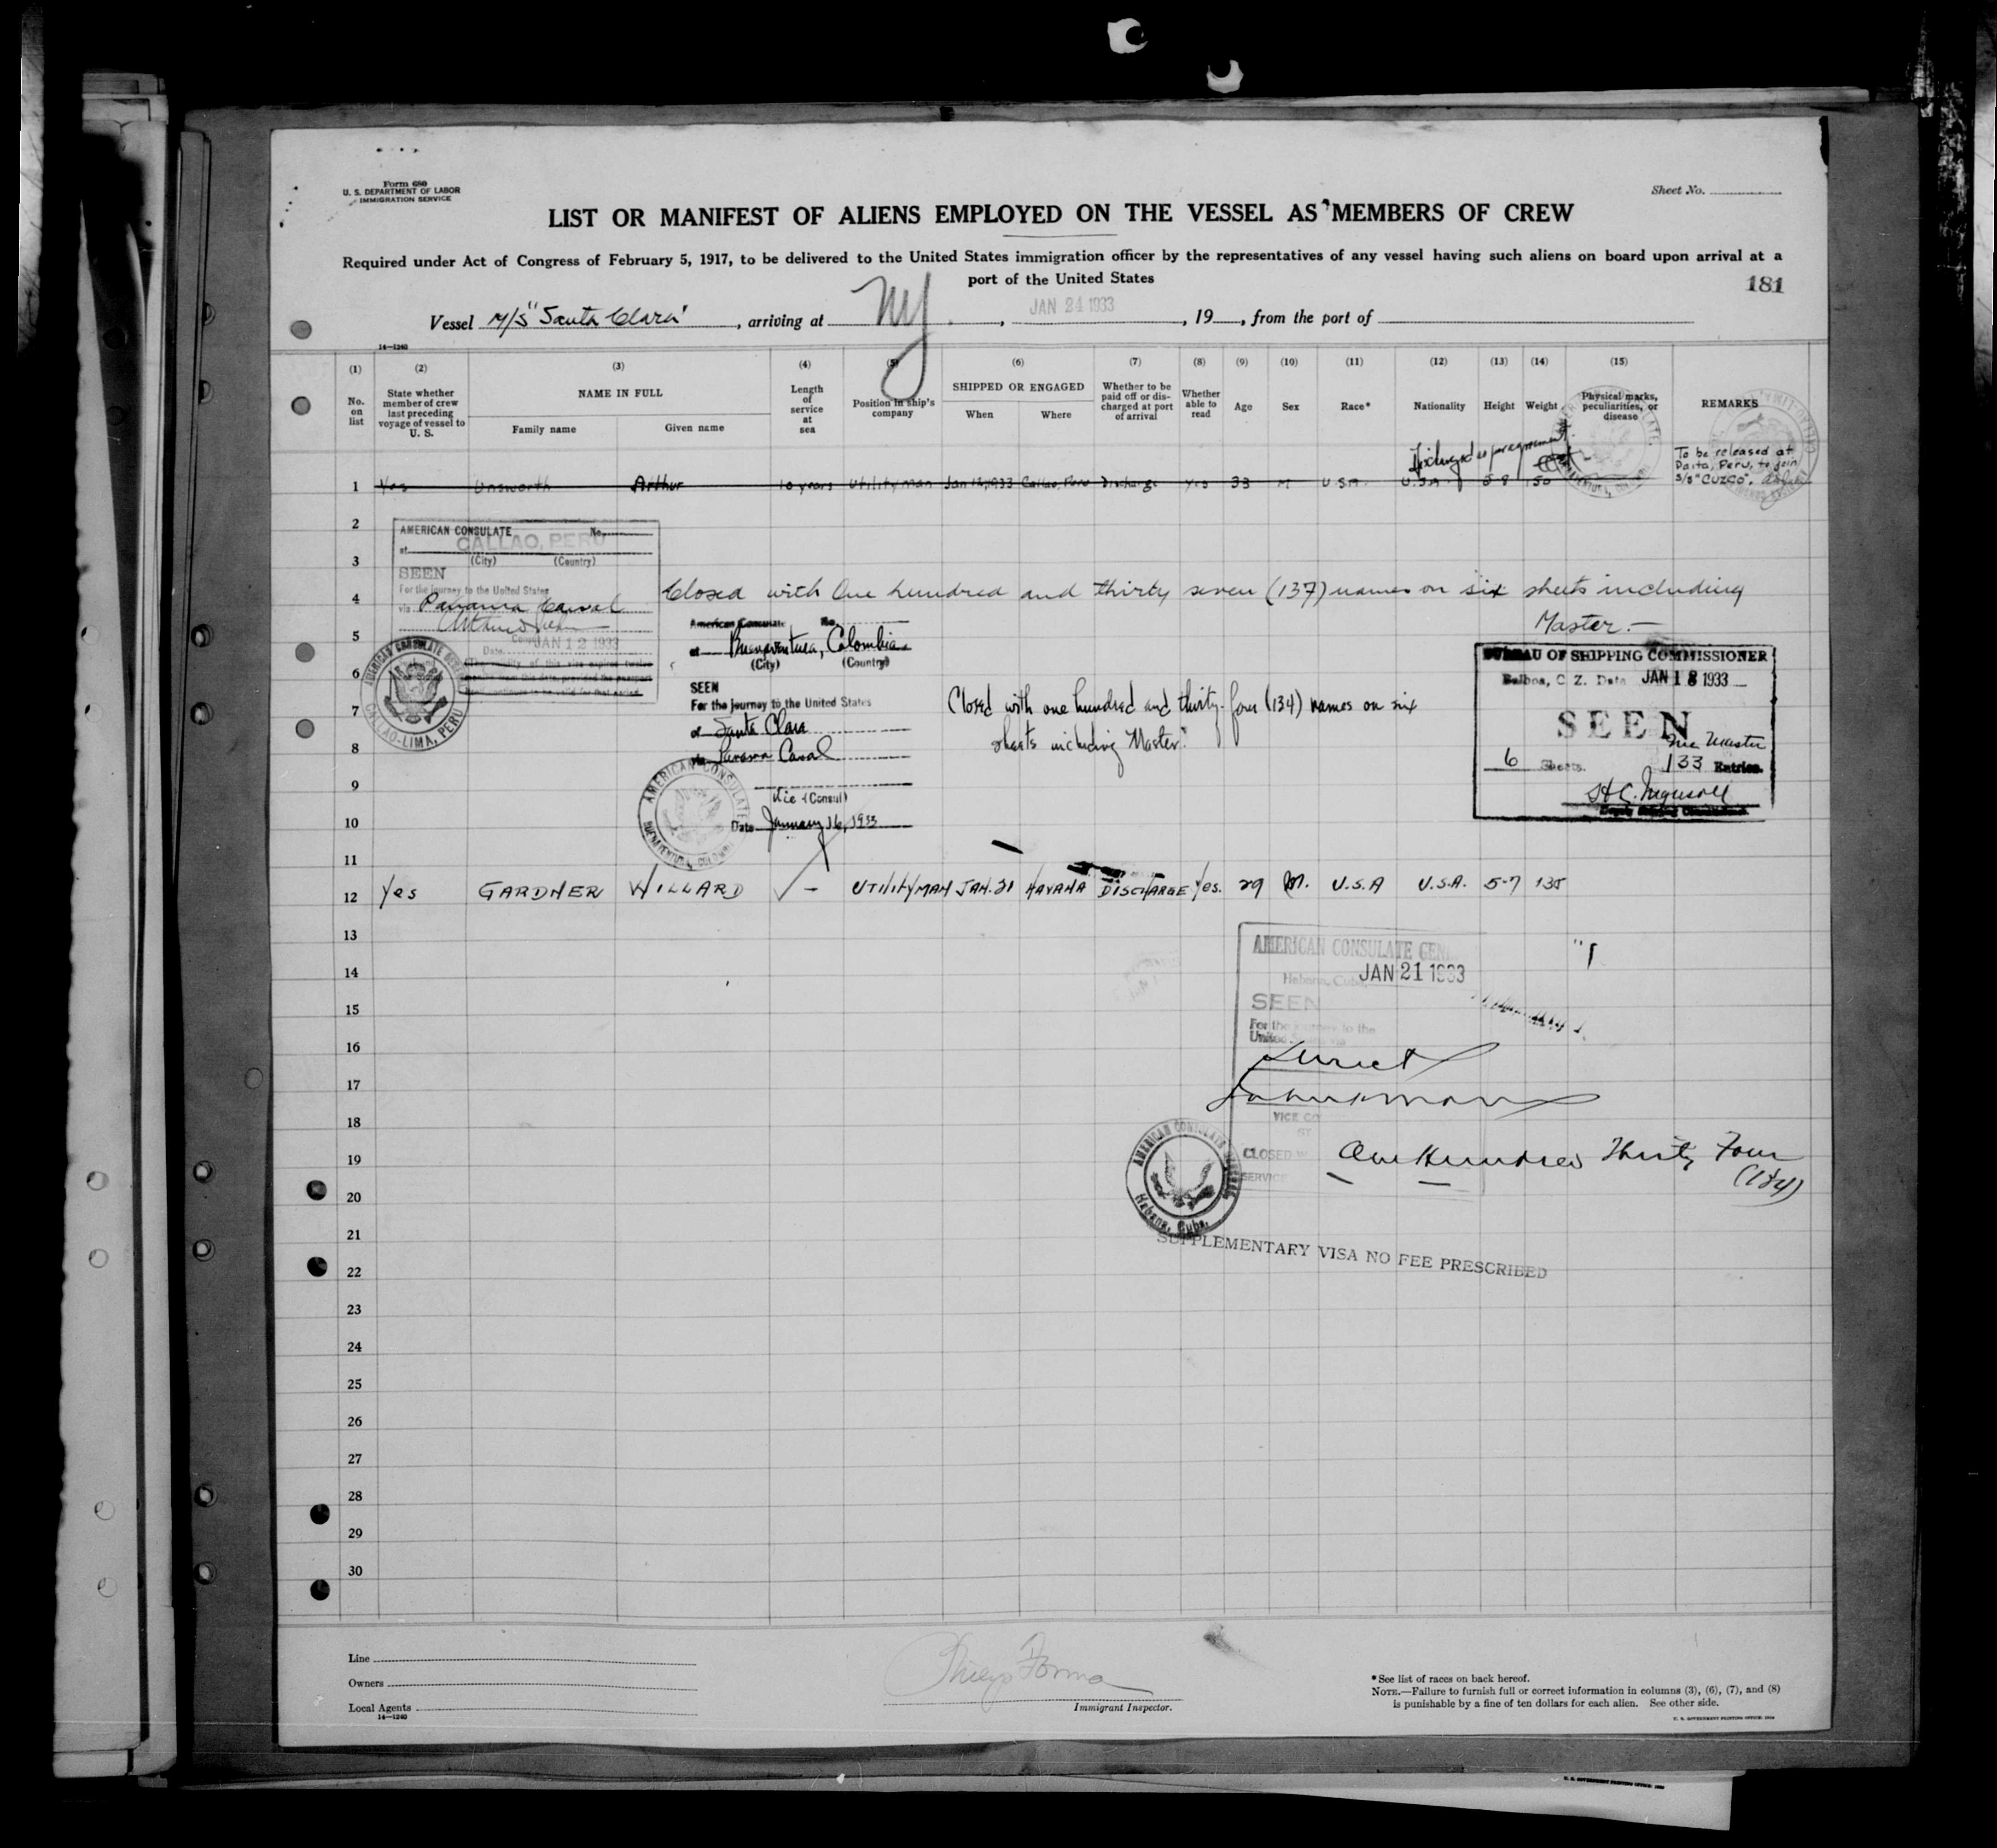 Form 680
U. S. DEPARTMENT OF LABOR
IMMIGRATION SERVICE
Sheet No.
LIST OR MANIFEST OF ALIENS EMPLOYED ON THE VESSEL AS MEMBERS OF CREW
Required under Act of Congress of February 5, 1917, to be delivered to the United States immigration officer by the representatives of any vessel having such aliens on board upon arrival at a
port of the United States
181
Vessel M/S "Santa Clara", arriving at NY, JAN 24 1933, 19, from the port of
14—1240
(1) (2) (3) (4) (5) (6) (7) (8) (9) (10) (11) (12) (13) (14) (15)
No. on list
State whether member of crew last preceding voyage of vessel to U. S.
NAME IN FULL
Family name
Given name
Length of service at sea
Position in ship's company
SHIPPED OR ENGAGED
When
Where
Whether to be paid off or discharged at port of arrival
Whether able to read
Age
Sex
Race*
Nationality
Height
Weight
Physical marks, peculiarities, or disease
REMARKS
1 Yes Unsworth Arthur 10 years Utilityman Jan 12, 1933 Callao, Peru Discharge Yes 33 M U.S.A. U.S.A 5-9 150
To be released at
Paita, Peru, to join
S/S "CUZCO".
2
AMERICAN CONSULATE No.
at CALLAO, PERU
(City) (Country)
3
SEEN
For the journey to the United States
via Panama Canal
4
Closed with One hundred and thirty seven (137) names on six sheets including
Master.—
Date JAN 12 1933
AMERICAN CONSULATE GENERAL
CALLAO-LIMA, PERU
5
American Consulate No.
at Buenaventura, Colombia.
(City) (Country)
6
SEEN
For the journey to the United States
of Santa Clara
via Panama Canal
7
Closed with one hundred and thirty-four (134) names on six
sheets including Master.
8
BUREAU OF SHIPPING COMMISSIONER
Balboa, C. Z. Date JAN 18 1933
SEEN
Inc Master
6 Sheets. 133 Entries.
H.C. Ingersoll
Deputy Shipping Commissioner
9
Vice (Consul)
Date January 16, 1933
AMERICAN CONSULATE
BUENAVENTURA, COLOMBIA
10
11
12 Yes GARDNER WILLARD ✓ – UTILITYMAN JAN. 21 HAVANA DISCHARGE Yes. 29 M. U.S.A U.S.A. 5-7 135
13
AMERICAN CONSULATE GEN
14
Habana, Cuba, JAN 21 1933
15
SEEN
For the journey to the
United States via
16
Direct
17
VICE CO
18
19
CLOSED W One Hundred Thirty Four
(134)
SERVICE
20
AMERICAN CONSULATE GENERAL
Habana, Cuba.
21
SUPPLEMENTARY VISA NO FEE PRESCRIBED
22
23
24
25
26
27
28
29
30
Line
Owners
Local Agents
14—1240
Immigrant Inspector.
*See list of races on back hereof.
NOTE.—Failure to furnish full or correct information in columns (3), (6), (7), and (8)
is punishable by a fine of ten dollars for each alien. See other side.